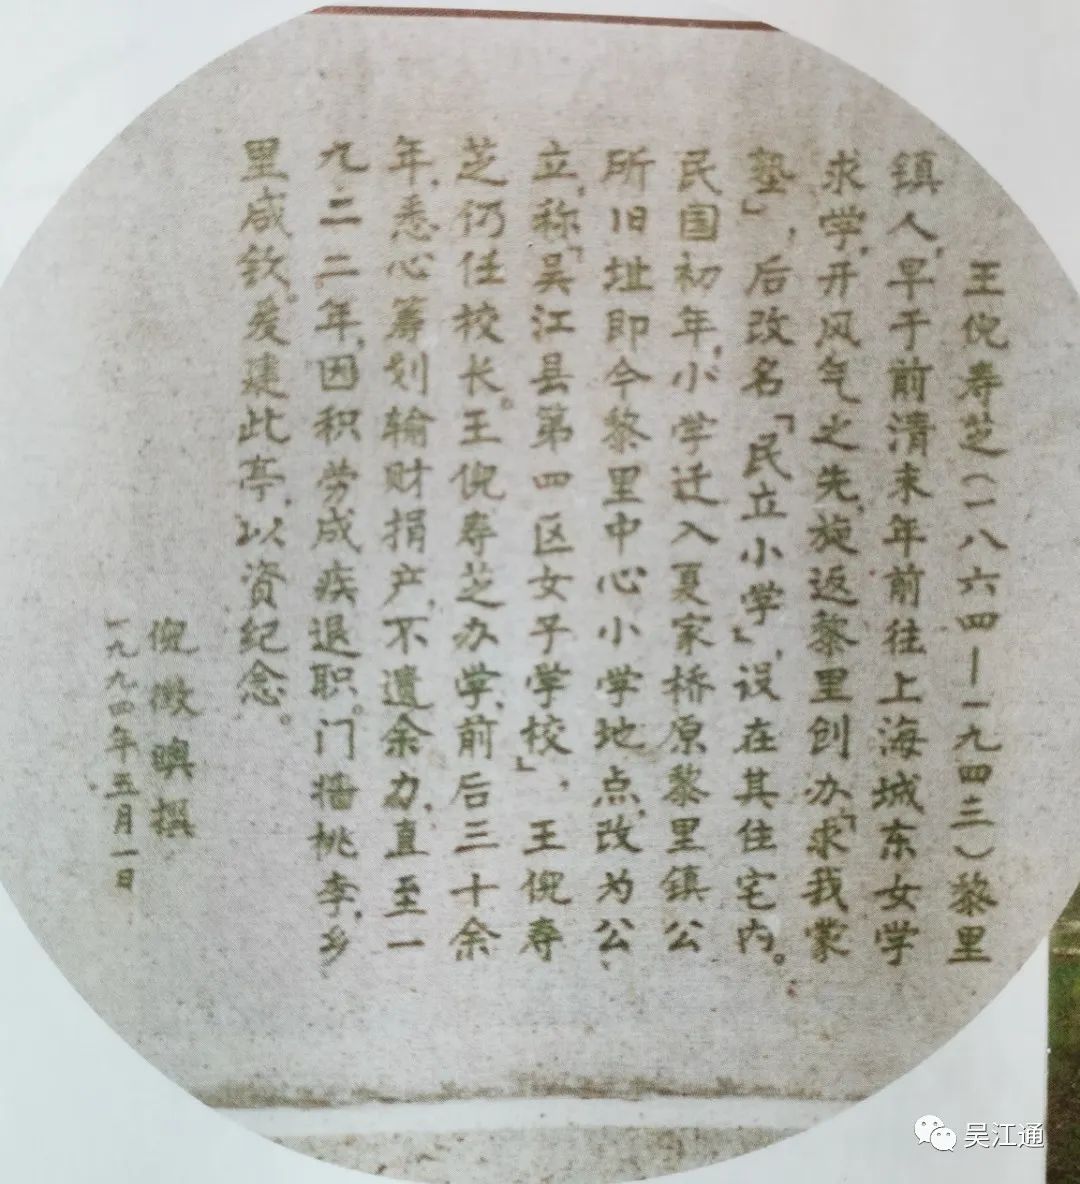 王倪寿芝(一八六四—一九四三)黎里
镇人,早于前清末年前往上海城东女学
求学,开风气之先,旋返黎里创办「求我蒙
塾」,后改名「民立小学」,设在其住宅内。
民国初年,小学迁入夏家桥原黎里镇公
所旧址即今黎里中心小学地点,改为公
立,称「吴江县第四区女子学校」,王倪寿
芝仍任校长。王倪寿芝办学,前后三十余
年,悉心筹划输财捐产,不遗余力,直至一
九二二年,因积劳成疾退职。门墙桃李,乡
里咸钦。爰建此亭,以资纪念。
倪徵𣋉撰
一九九四年五月一日
吴江通